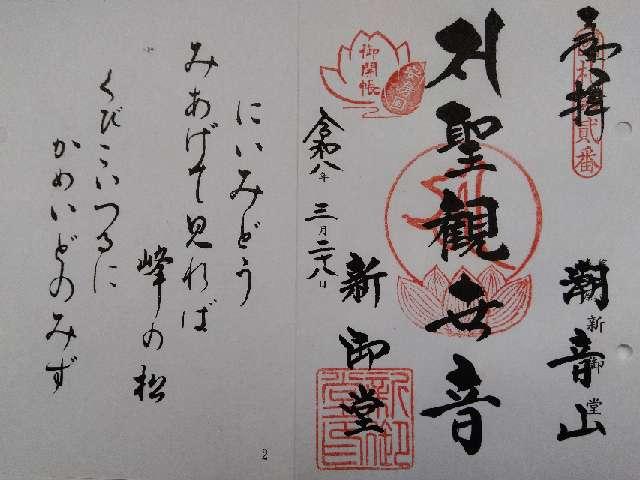 奉拝
札所貳番
潮音山
新御堂
聖観世音
御開帳
安房国
令和八年 三月二十八日
新御堂
新御堂
にいみどう
みあげて見れば
峰の松
くびこいつるに
かめいどのみず
2